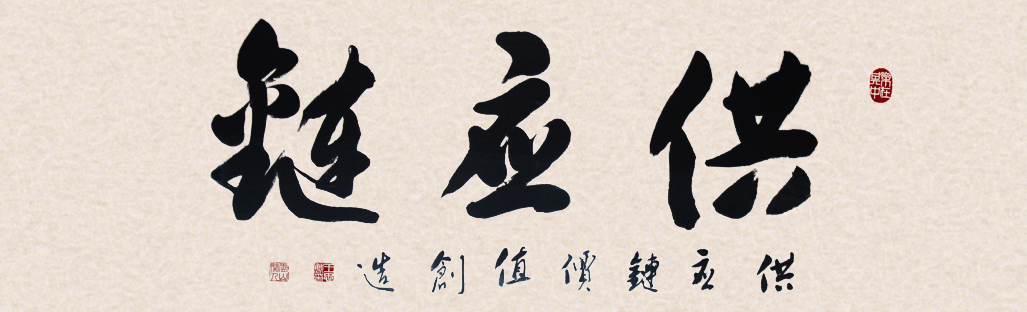 供应鏈
供应鏈價值創造